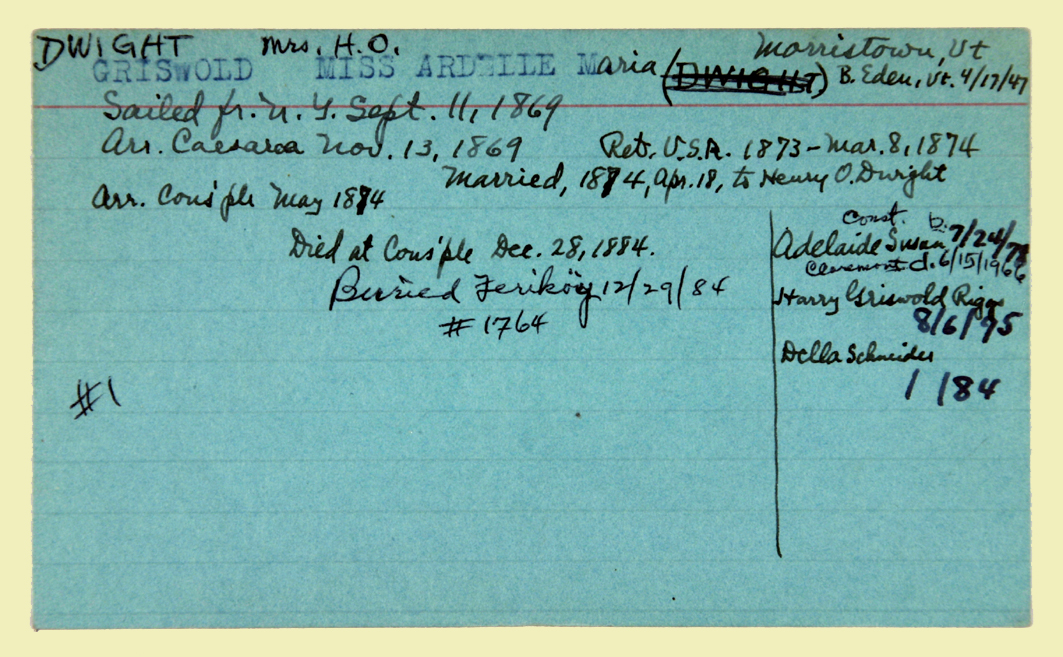 DWIGHT Mrs. H.O. Morristown, Vt
GRISWOLD MISS ARDELLE Maria (DWIGHT) B. Eden, Vt. 4/17/47
Sailed fr. N. Y. Sept. 11, 1869
Arr. Caesarea Nov. 13, 1869 Ret. U.S.A. 1873 - Mar. 8, 1874
Married, 1874, Apr. 18, to Henry O. Dwight
Arr. Cons'ple May 1874
Const. b.
Adelaide Susan 7/24/78
Claremont d. 6/15/1966
Died at Cons'ple Dec. 28, 1884.
Buried Feriköy 12/29/84
Harry Griswold Riggs
8/6/95
#1764
Della Schneider
1 /84
#1